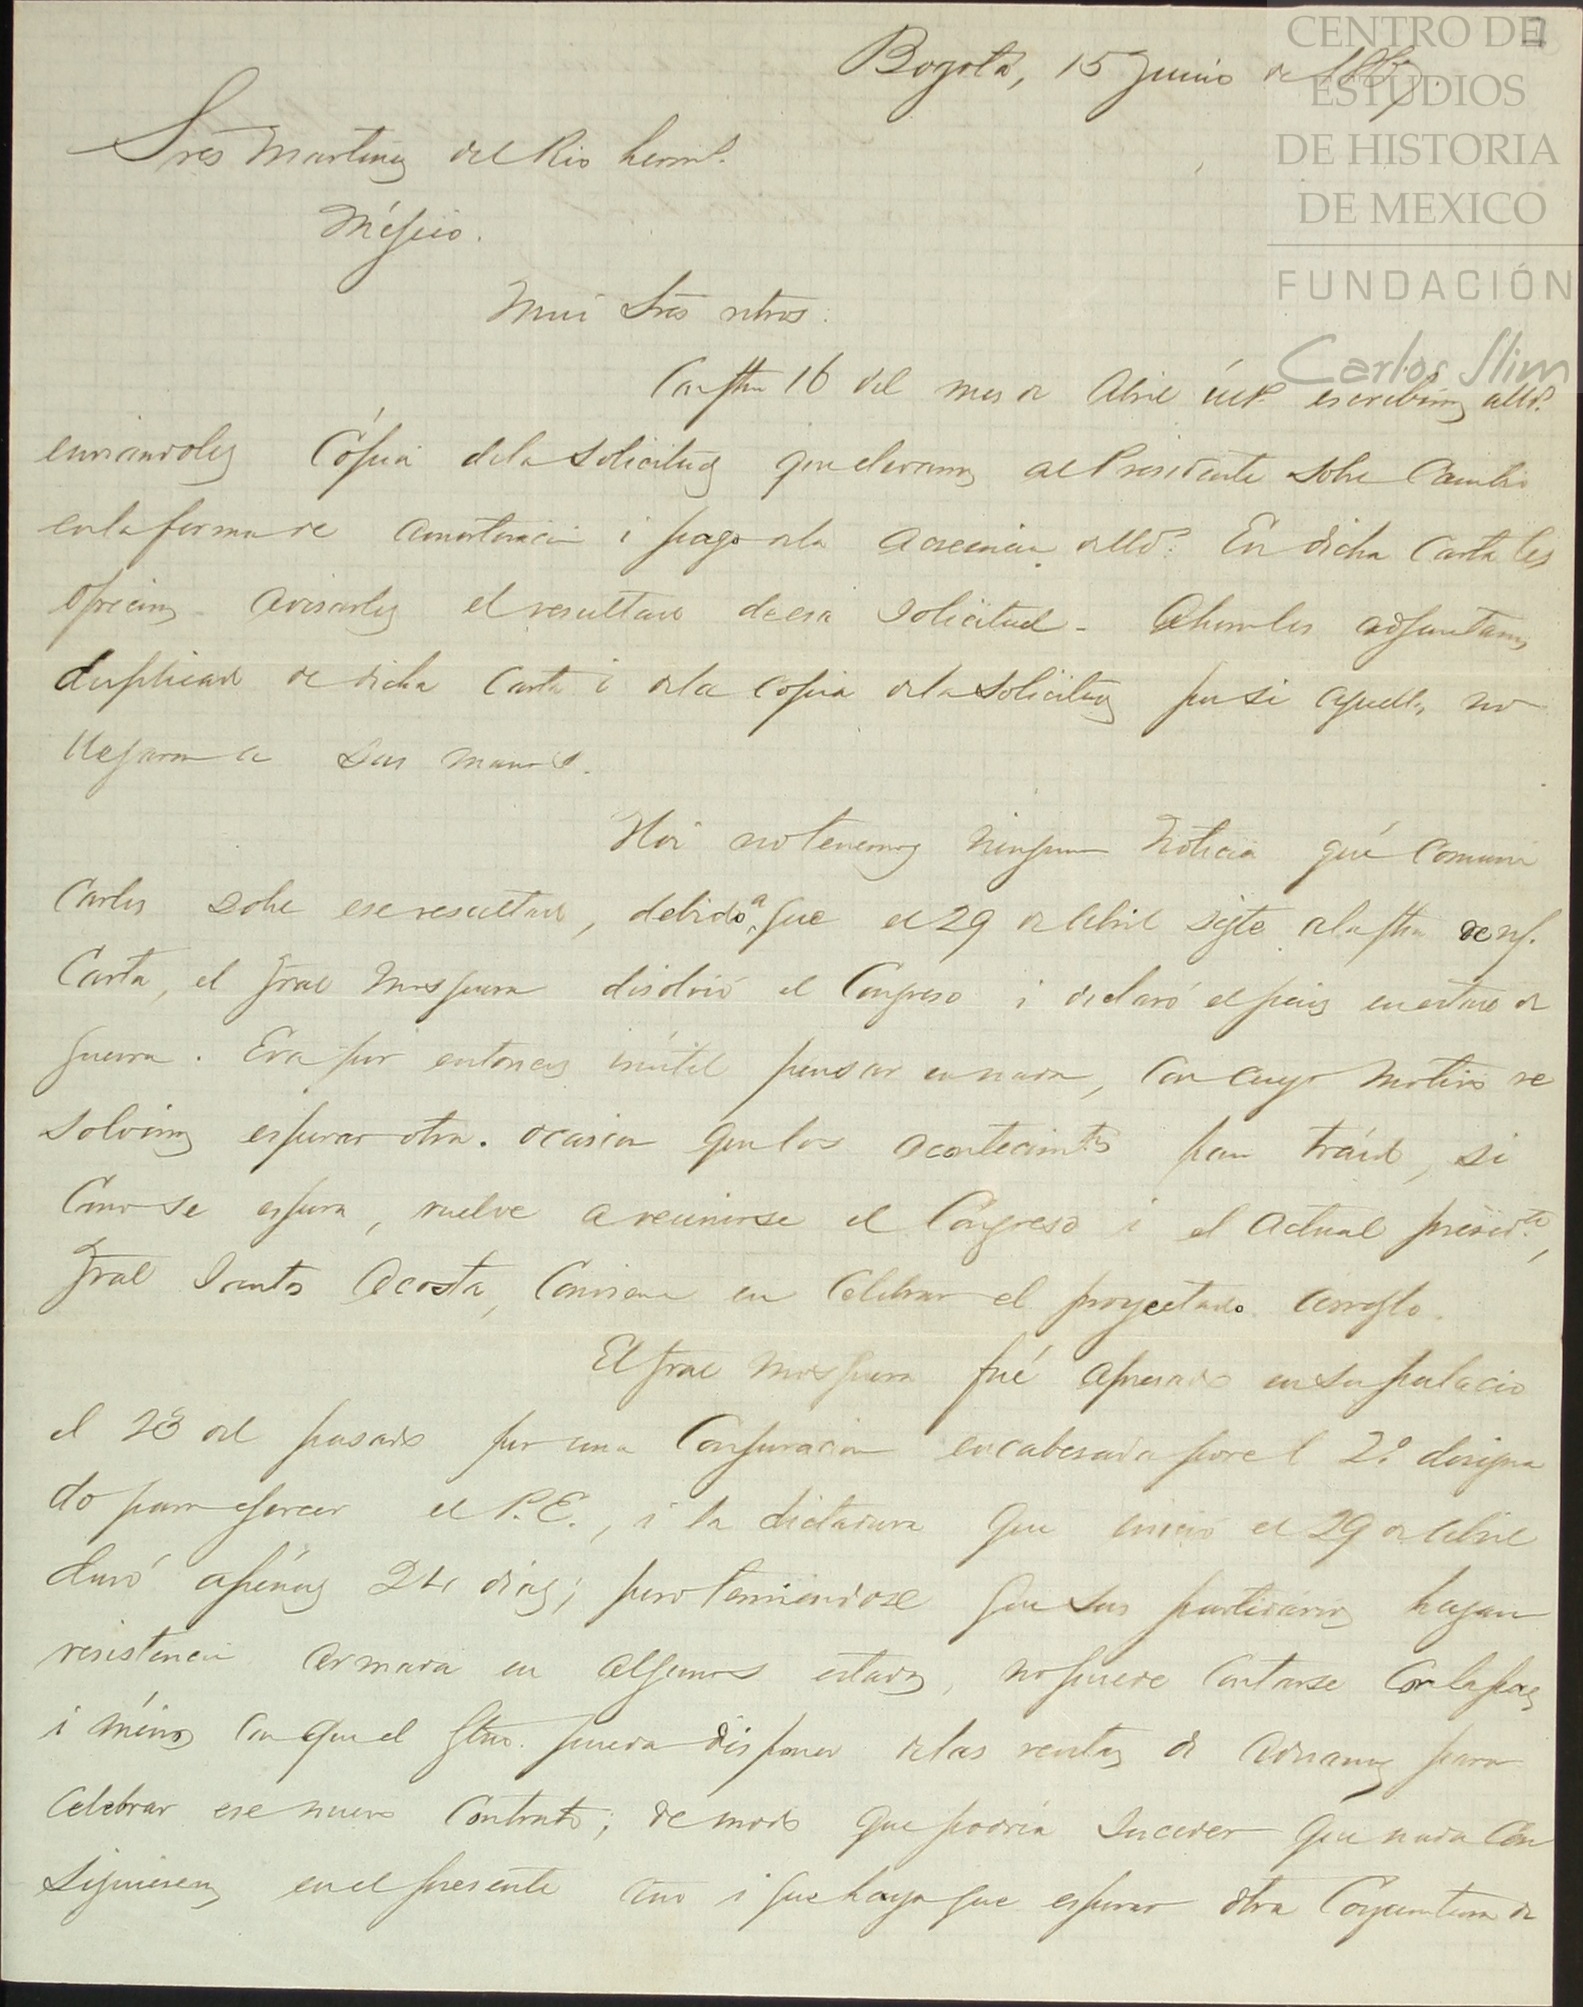 CENTRO DE
ESTUDIOS
DE HISTORIA
DE MEXICO
FUNDACIÓN
Carlos Slim
Bogotá, 15 Junio de 1867.
Sres Martinez del Rio herms.
Méjico.
Mui Sres ntros.
Con fha 16 del mes de Abril últ. escribimos a Uds.
enviandoles cópia de la solicitud que elevamos al Presidente sobre cambio
en la forma de amortizacion i pago de la acreencia de Uds. En dicha carta les
ofrecimos avisarles el resultado de esa solicitud - Ahora les adjuntamos
duplicado de dicha carta i de la copia de la solicitud por si aquellas no
llegaron a sus manos.
Hoi no tenemos ninguna noticia que comuni
carles sobe ese resultado, debido a que el 29 de Abril sigte a la fha de nj.
carta, el Jral Mosquera disolvió el Congreso i declaró el pais en estado de
guerra. Era por entonces inútil pensar en nada, con cuyo motivo re
solvimos esperar otra ocasion que los acontecimtos han traido, si
como se espera, vuelve a reunirse el Congreso i el actual presidte,
Jral Santos Acosta, conviene en celebrar el proyectado arreglo.
El Jral Mosquera fué apresado en su palacio
el 23 del pasado por una conjuracion encabesada por el 2º designa
do para ejercer el P.E., i la dictadura que inició el 29 de Abril
duró apénas 24 dias; pero temiendose que sus partidarios hagan
resistencia armada en algunos estados, no puede contarse con la paz
i ménos con que el Gbno. pueda disponer de las rentas de aduanas para
celebrar ese nuevo contrato; de modo que podria suceder que nada con
siguiesemos en el presente año i que haya que esperar otra coyuntura de